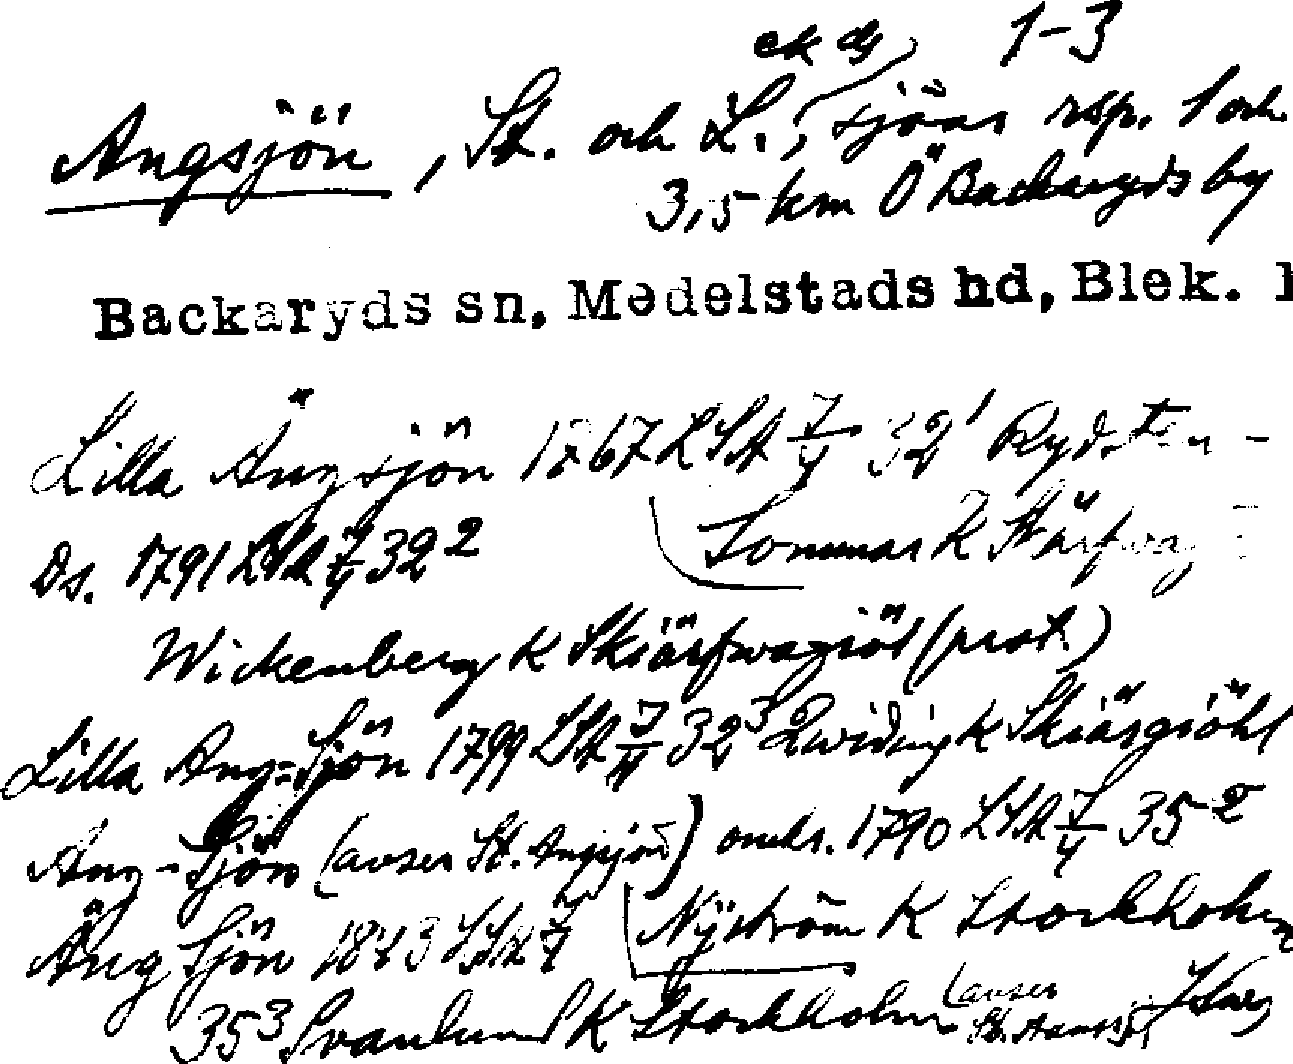 ek ds 1-3
Angsjön, St. och L., sjöar rsp. 1 och
3,5 km Ö Backaryds by
Backaryds sn, Medelstads hd, Blek. l
Lilla Ängsjön 1767 LSA 7/4 32¹ Rydsten-
Ds. 1791 LSA 7/4 32² Sommar K
Wickenberg K Skiärfwagiöl (prot.)
Lilla Ang-Sjön 1799 LSA 32³ Qwiding K Skiärgiöhl
Ang-Sjön (avser St. Angsjön) omkr. 1790 LSA 7/4 35²
Äng Sjön 1843 LSA Nyström K Stockholm
35³ Svanlund K Stockholm (avser